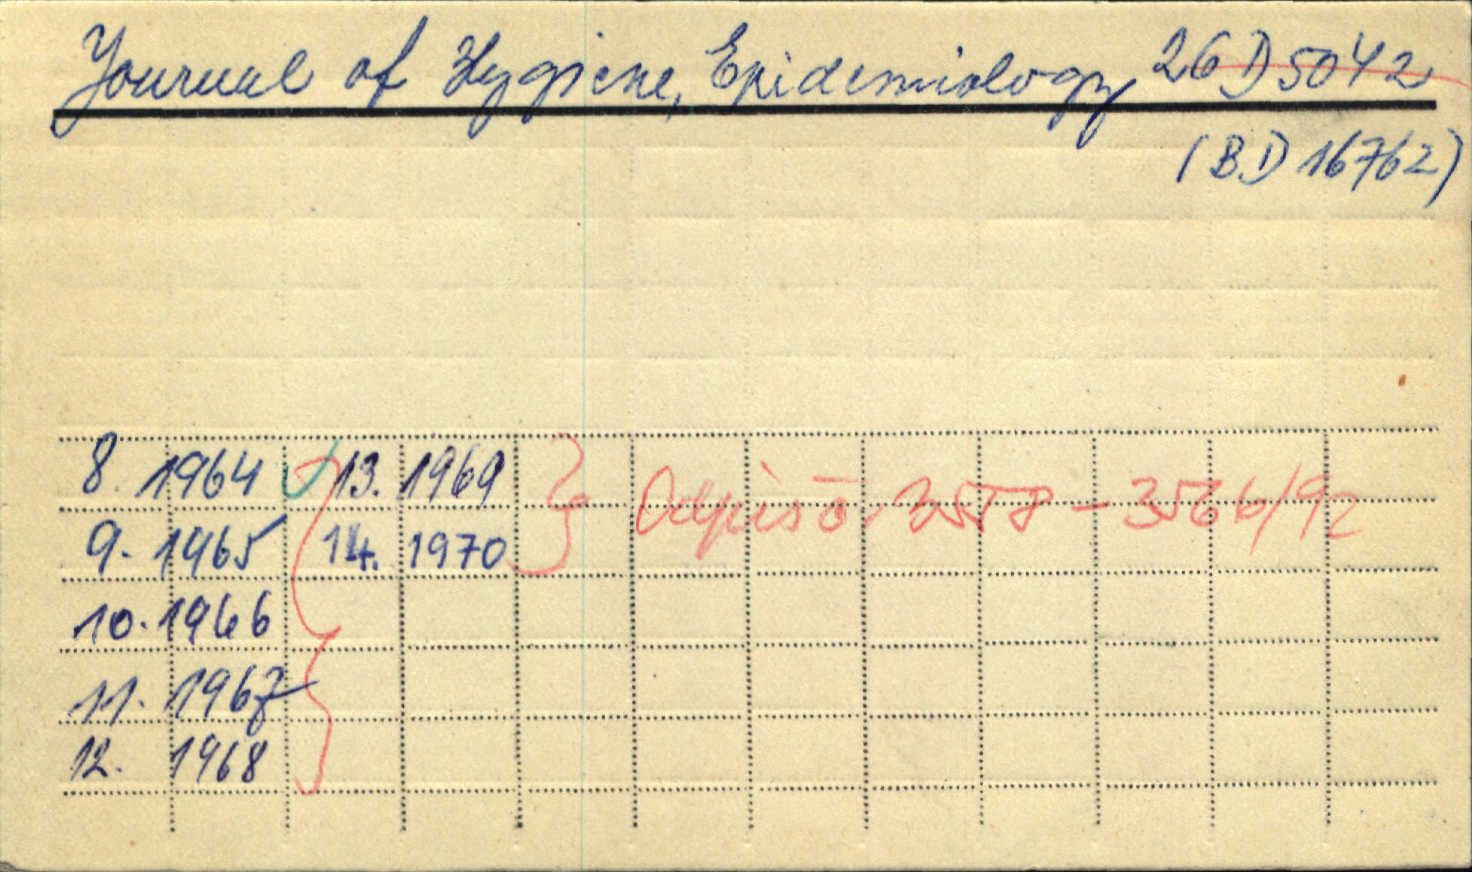 Journal of Hygiene, Epidemiology 26 D 5042
(BD 16762)
8. 1964 13. 1969
9. 1965 14. 1970
10. 1966
11. 1967
12. 1968